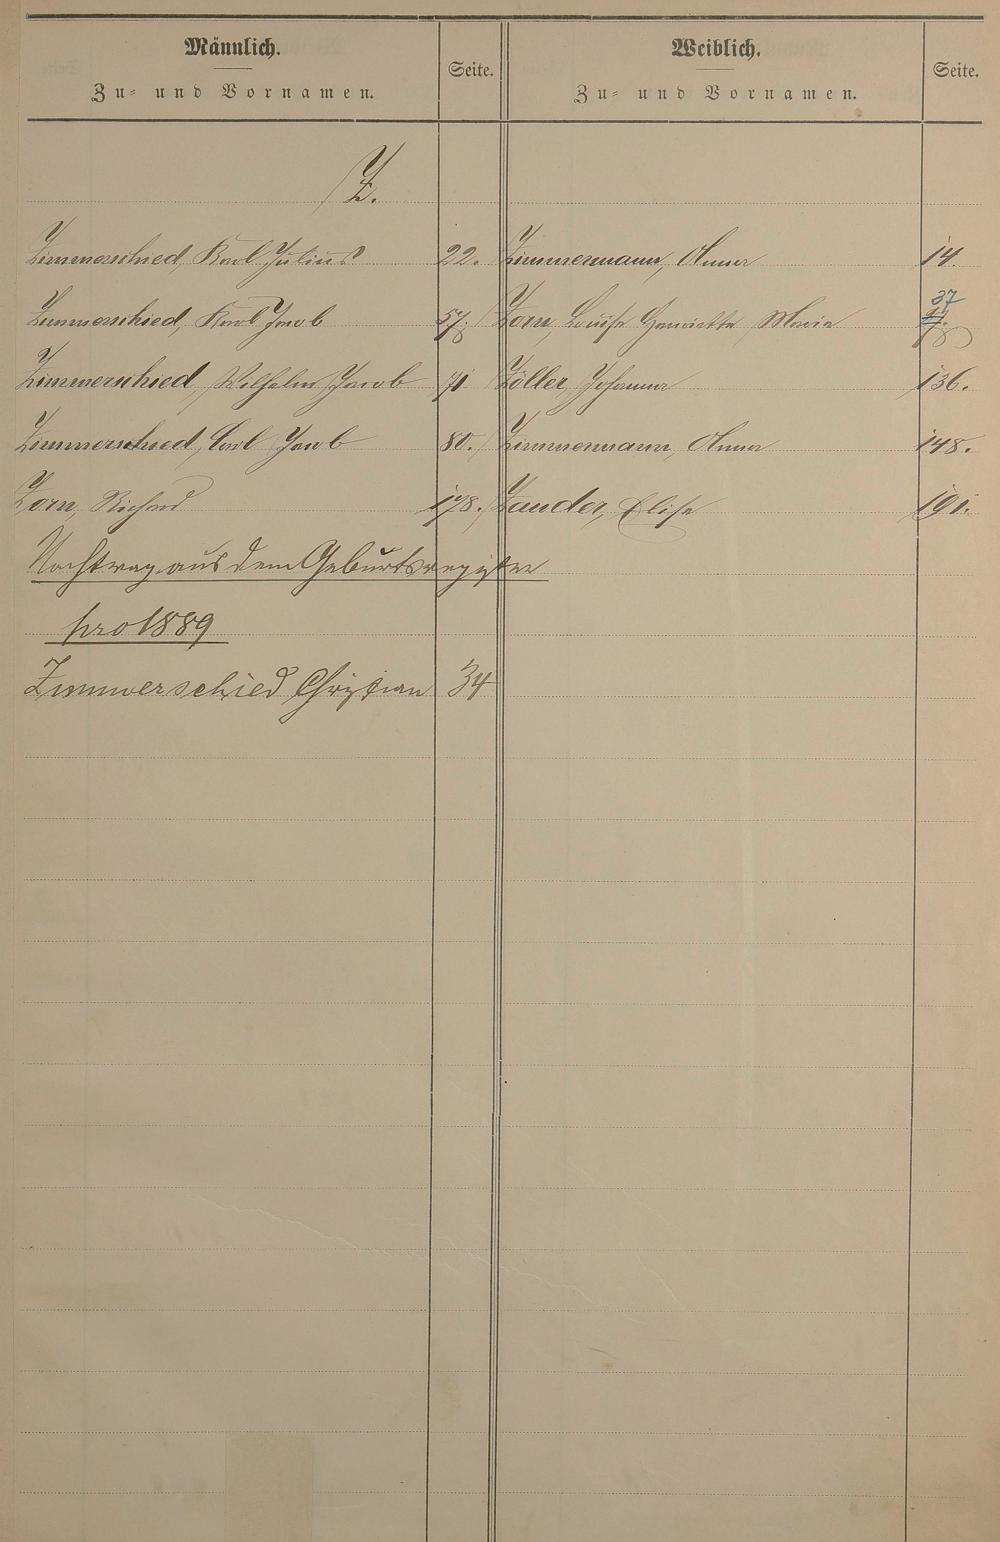 Männlich.
Zu- und Vornamen.
Seite.
Weiblich.
Zu- und Vornamen.
Seite.
Z.
Zimmerschied, Karl Julius 22. Zimmermann, Anna 14.
Zimmerschied, Karl Jacob 57. Zorn, Louise Henriette Marie 37
Zimmerschied, Wilhelm Jacob 71 Zöller, Johanna 136.
Zimmerschied, Carl Jacob 80. Zimmermann, Anna 148.
Zorn, Richard 178. Zander, Elise 191.
Nachtrag aus dem Geburtsregister
pro 1889
Zimmerschied Christian 34